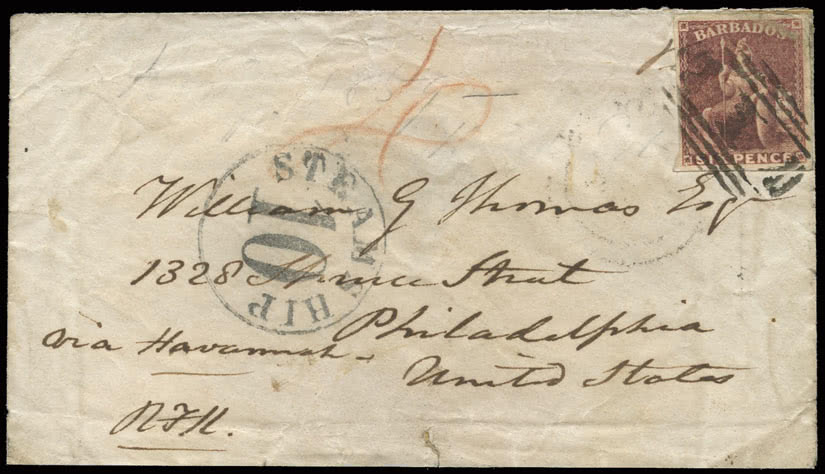 BARBADOS
SIX PENCE
STEAM SHIP
10
William G Thomas Esqr
1328 Spruce Street
Philadelphia
via Havannah
United States